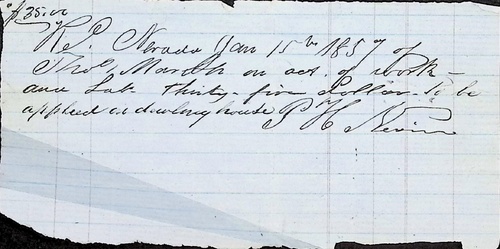 $35.00
Nevada Jan 15th 1857 of
Thos March on act. of work
and Lab Thirty-five Dollars to be
applied on dwling house P H